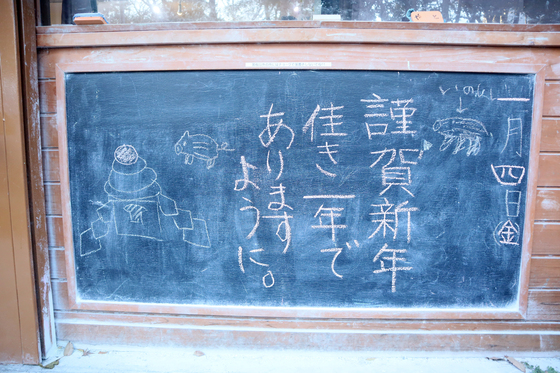 一月四日㊎
いのしし
謹賀新年
佳き一年で
あります
ように。
賀